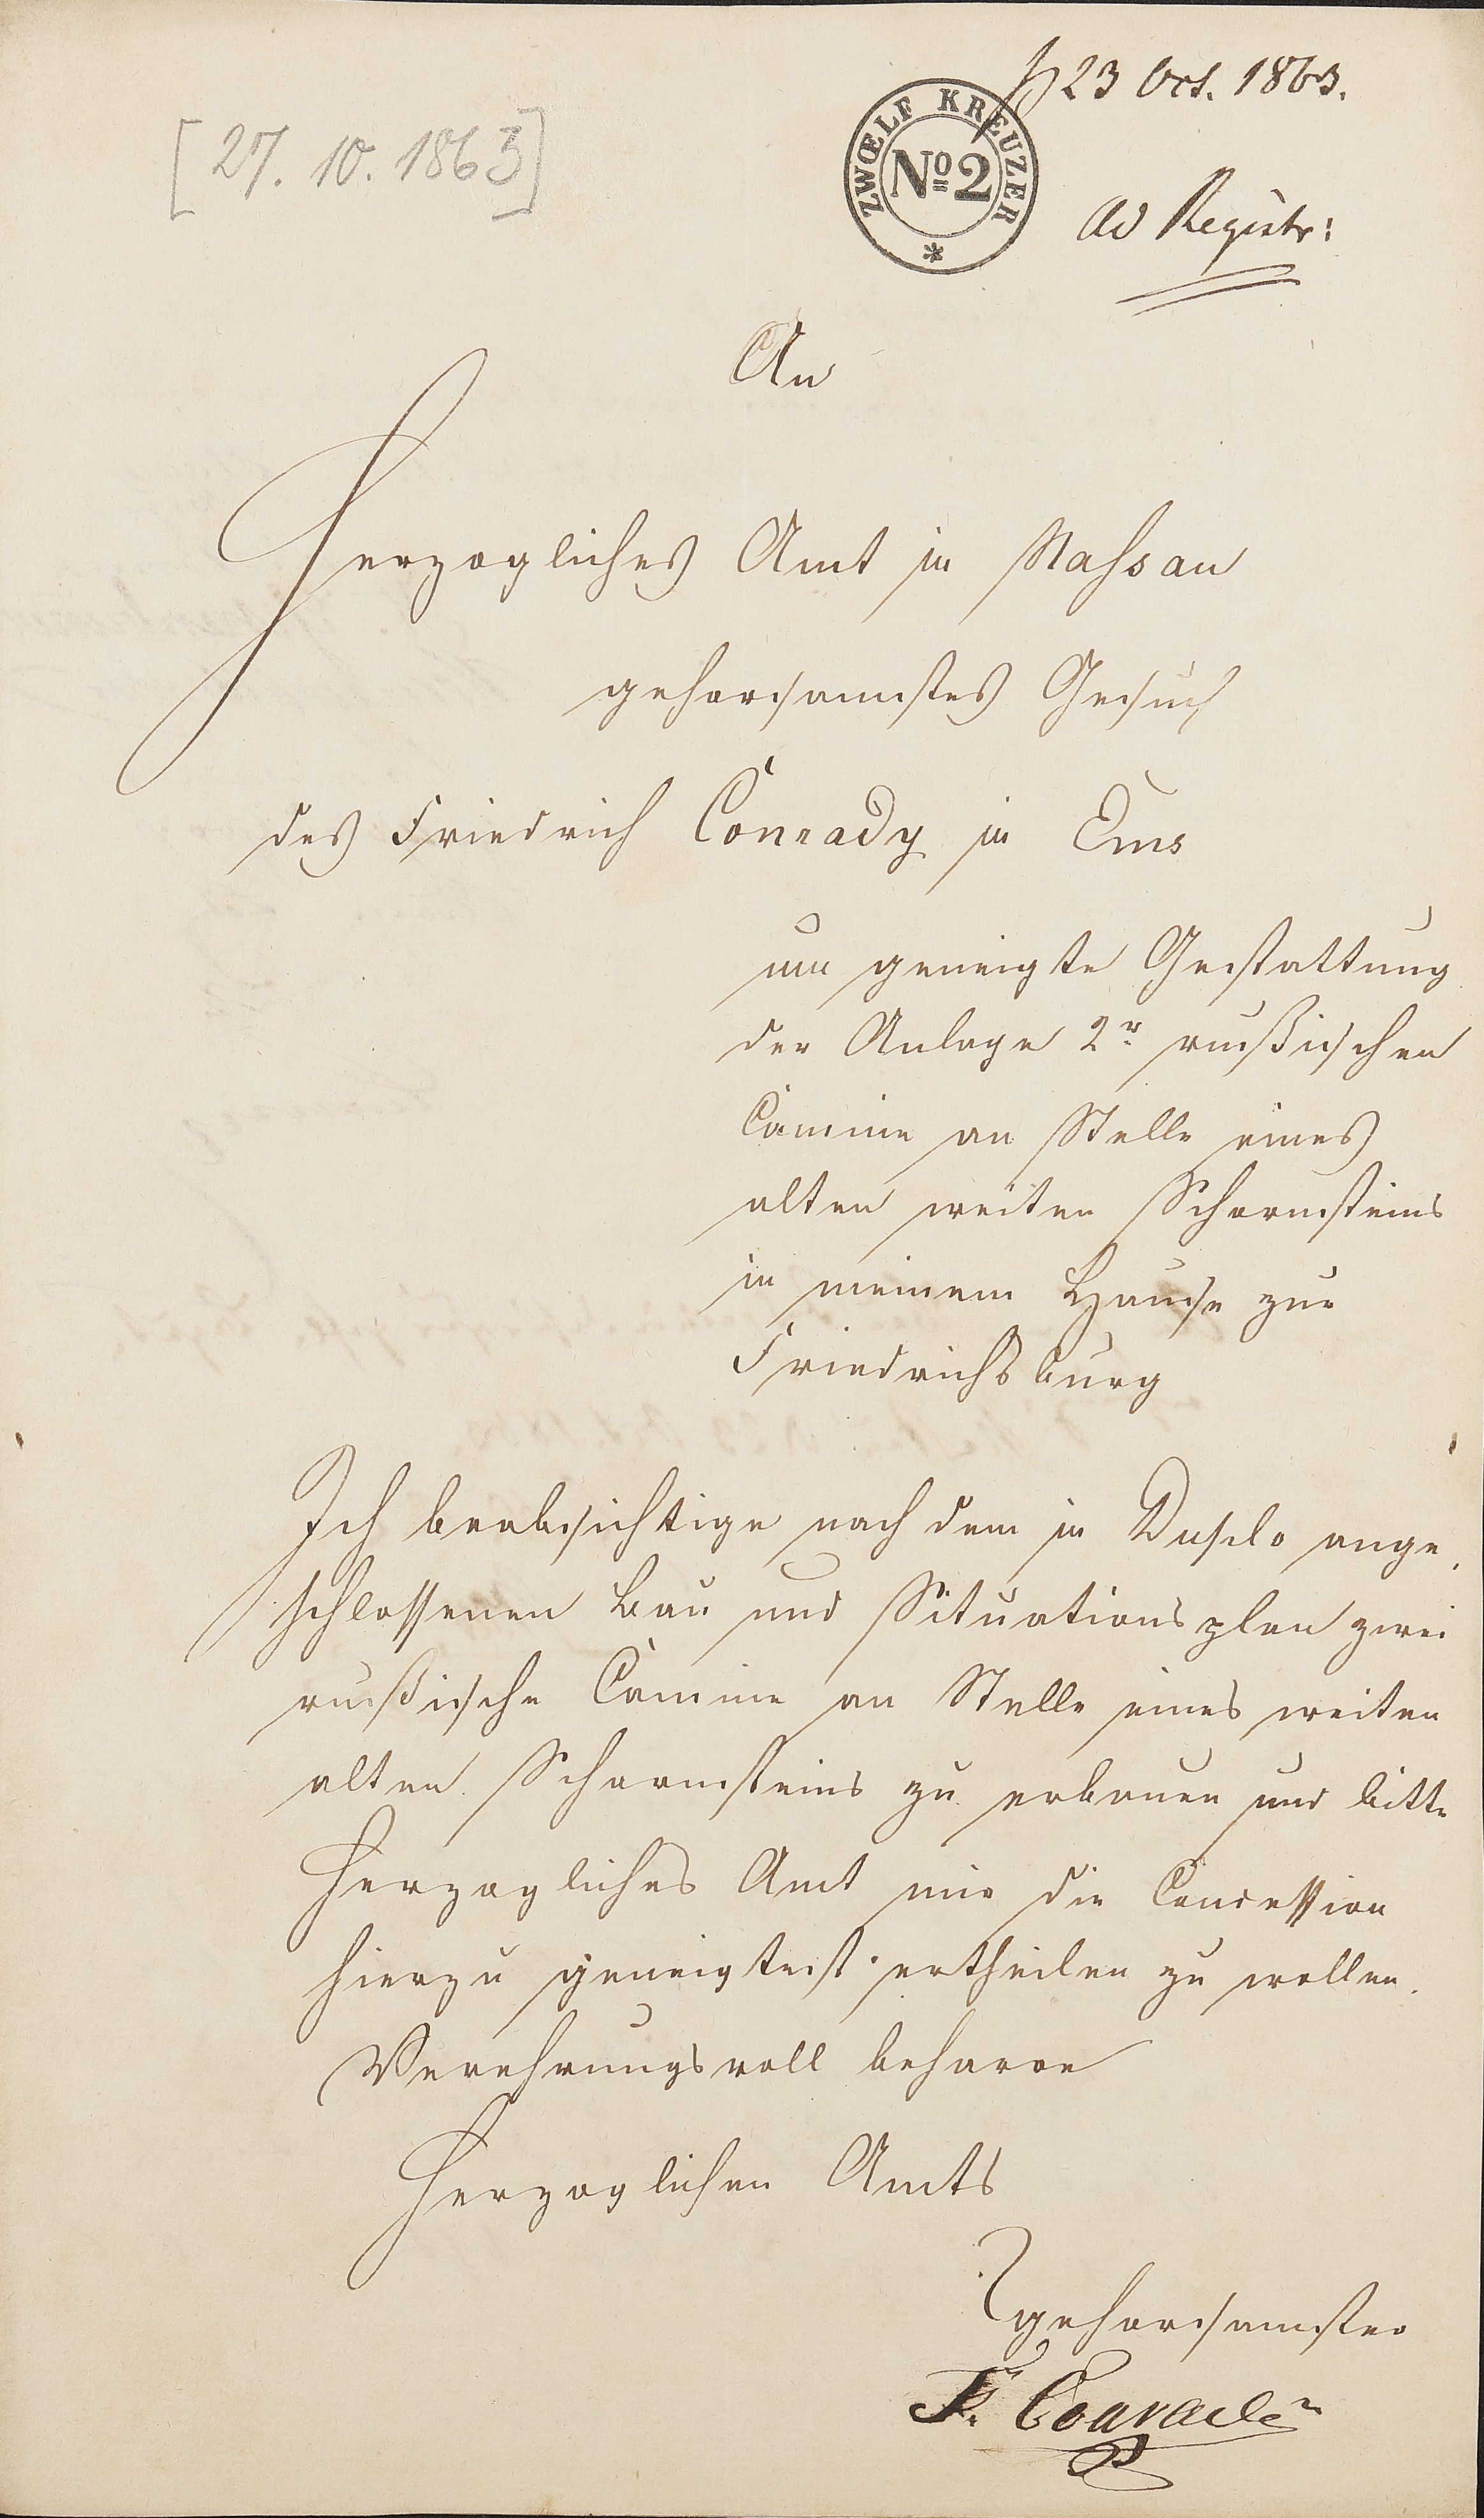 23 Oct. 1863.
[27. 10. 1863]
ZWŒLF KREUZER
No 2
ad Registr:
An
Herzogliches Amt in Nassau
gehorsamstes Gesuch
des Friedrich Conrady in Ems
um geneigte Gestattung
der Anlage 2r rußischen
Camine an Stelle eines
alten weiten Schornsteins
in meinem Hause zur
Friedrichsburg
Ich beabsichtige nach dem in Duplo ange,
schlossenen Bau und Situationsplan zwei
rußische Camine an Stelle eines weiten
alten Schornsteins zu erbauen und bitte
Herzogliches Amt mir die Concession
hierzu geneigtest ertheilen zu wollen.
Verehrungsvoll beharre
Herzoglichen Amts
gehorsamster
F. Conrady